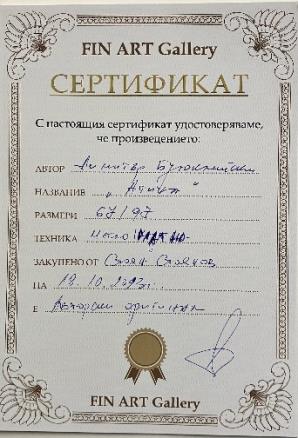 FIN ART Gallery
СЕРТИФИКАТ
С настоящия сертификат удостоверяваме,
че произведението:
АВТОР Димитър
НАЗВАНИЕ
РАЗМЕРИ 67/97
ТЕХНИКА Масло
ЗАКУПЕНО ОТ Стоян Стоянов
НА 19.10.
Е Авторски оригинал
FIN ART Gallery